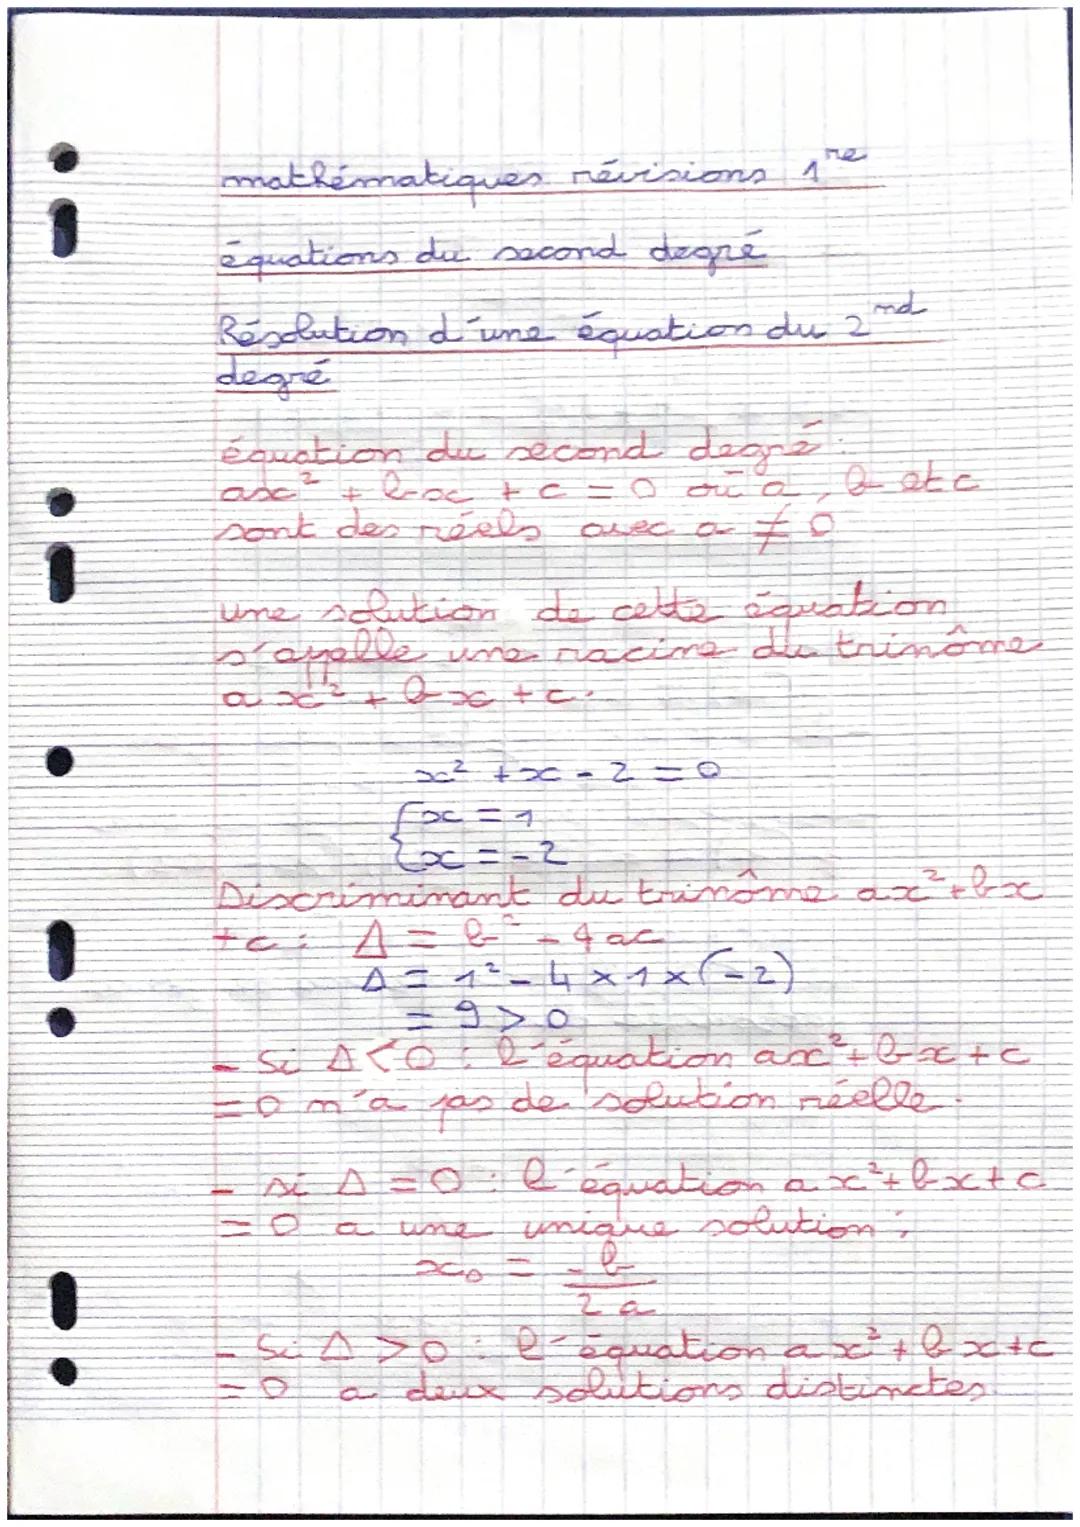 mathématiques révisions 1re
équations du second degré
Résolution d'une équation du 2nd
degré
équation du second degré :
ax² + bx + c = 0 où a, b et c
sont des réels avec a ≠ 0
une solution de cette équation
s'appelle une racine du trinôme
ax² + bx + c.
x² + x - 2 = 0
{ x = 1
{ x = -2
Discriminant du trinôme ax² + bx
+ c : Δ = b² - 4ac
Δ = 1² - 4 × 1 × (-2)
= 9 > 0
- Si Δ < 0 : l'équation ax² + bx + c
= 0 n'a pas de solution réelle.
- si Δ = 0 : l'équation ax² + bx + c
= 0 a une unique solution :
x₀ = -b
2a
- Si Δ > 0 : l'équation ax² + bx + c
= 0 a deux solutions distinctes